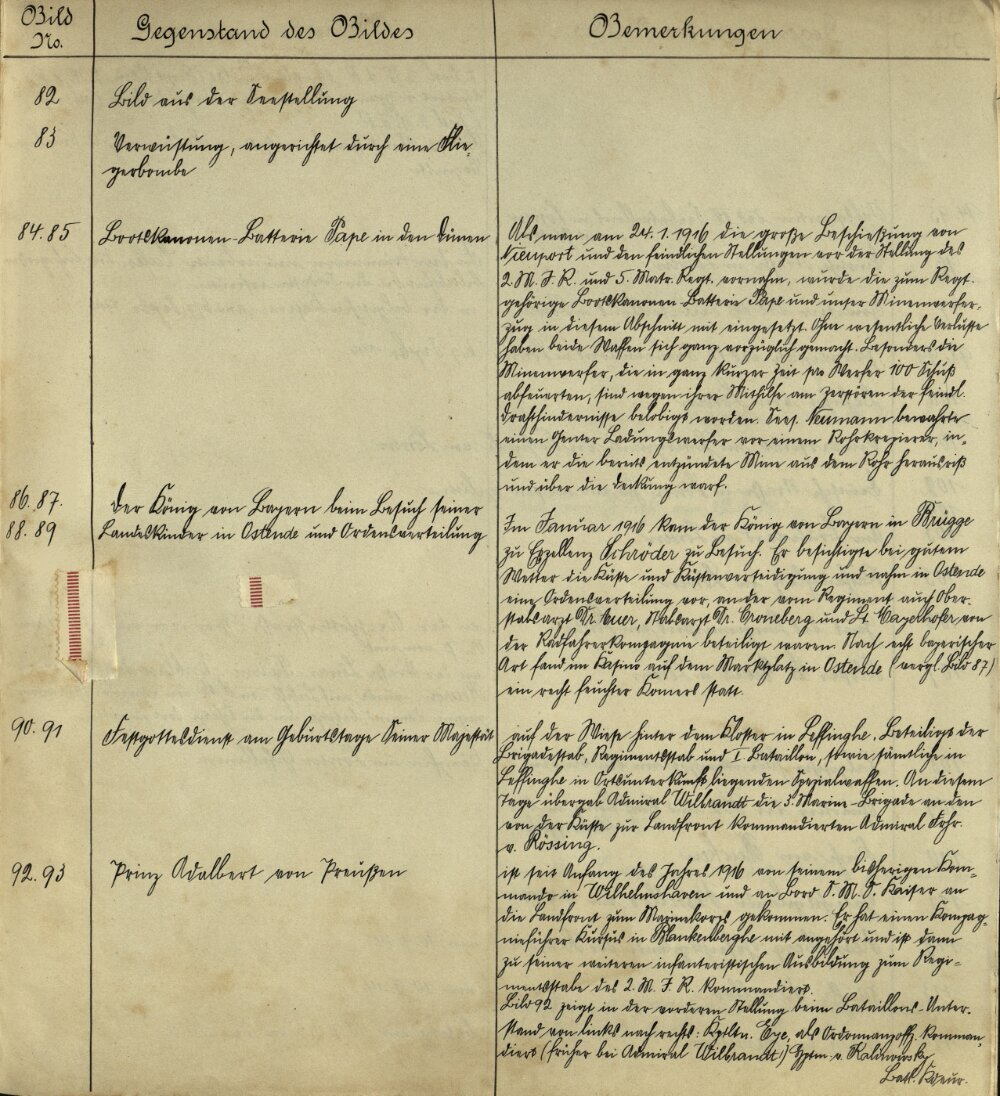 Bild No.
Gegenstand des Bildes
Bemerkungen
82
Bild aus der Seestellung
83
Verwüstung, angerichtet durch eine Flie-
gerbombe
84.85
Bootskanonen-Batterie Pape in den Dünen
Als man am 24.1.1916 die große Beschießung von
Nieuport und den feindlichen Stellungen vor der Stellung des
2 M.I.R. und 5. Matr. Regt. vornahm, wurde die zum Regt.
gehörige Bootskanonen-Batterie Pape und unser Minenwerfer-
zug in diesem Abschnitt mit eingesetzt. Ohne wesentliche Verluste
haben beide Waffen sich ganz vorzüglich gemacht. Besonders die
Minenwerfer, die in ganz kurzer Zeit pro Werfer 100 Schuß
abfeuerten, sind wegen ihrer Mithilfe am Zerstören der feindl.
Drahthindernisse belobigt worden. Sees. Neumann bewahrte
einen Genter Ladungswerfer vor einem Rohrkrepierer, in-
dem er die bereits entzündete Mine aus dem Rohr herausriß
und über die Deckung warf.
86.87.
88.89
Der König von Bayern beim Besuch seiner
Landeskinder in Ostende und Ordensverteilung
Im Januar 1916 kam der König von Bayern in Brügge
zu Exzellenz Schröder zu Besuch. Er besichtigte bei gutem
Wetter die Küste und Küstenverteidigung und nahm in Ostende
eine Ordensverteilung vor, an der vom Regiment auch Ober-
stabsarzt Dr. Auer, Stabsarzt Dr. Croneberg und Lt. Mayerhofer von
der Radfahrerkompagnie beteiligt waren. Nach echt bayerischer
Art fand im Kasino auf dem Marktplatz in Ostende (vergl. Bild 87)
ein recht feuchter Komers statt.
90.91
Festgottesdienst am Geburtstage Seiner Majestät
auf der Wiese hinter dem Kloster in Leffinghe. Beteiligt der
Brigadestab, Regimentsstab und I. Bataillon, sowie sämtliche in
Leffinghe in Ortsunterkunft liegenden Spezialwaffen. An diesem
Tage übergab Admiral Wilbrandt die 3. Marine-Brigade an den
von der Küste zur Landfront kommandierten Admiral Frhr.
v. Rössing.
92.93
Prinz Adalbert von Preußen
ist seit Anfang des Jahres 1916 von seinem bisherigen Kom-
mando in Wilhelmshaven und an Bord S.M.S. Kaiser an
die Landfront zum Marinekorps gekommen. Er hat einen Kompag-
nieführer Kursus in Blankenberghe mit angehört und ist dann
zu seiner weiteren infanteristischen Ausbildung zum Regi-
mentsstabe des 2. M.I.R. kommandiert.
Bild 92 zeigt in der vorderen Stellung beim Bataillons-Unter-
stand von links nach rechts: Kptltn. Eye, als Ordonnanzoffz. komman-
diert (früher bei Admiral Wilbrandt) Hptm. v. Kalinowsky
Batl. Kdeur.